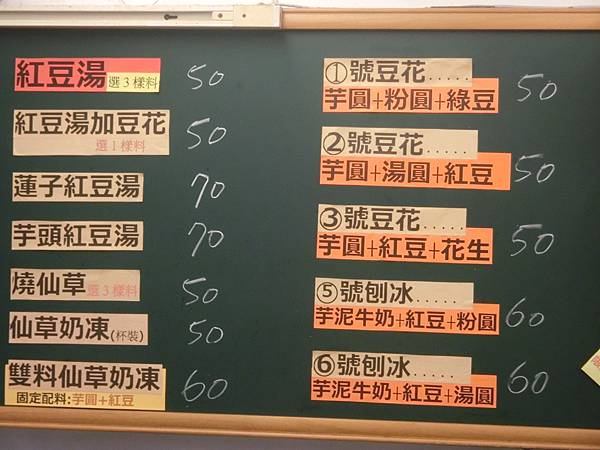 紅豆湯 選3樣料 50
紅豆湯加豆花 50
選1樣料
蓮子紅豆湯 70
芋頭紅豆湯 70
燒仙草 選3樣料 50
仙草奶凍(杯裝) 50
雙料仙草奶凍 60
固定配料:芋圓+紅豆
①號豆花.....
芋圓+粉圓+綠豆 50
②號豆花.....
芋圓+湯圓+紅豆 50
③號豆花.....
芋圓+紅豆+花生 50
⑤號刨冰.....
芋泥牛奶+紅豆+粉圓 60
⑥號刨冰.....
芋泥牛奶+紅豆+湯圓 60